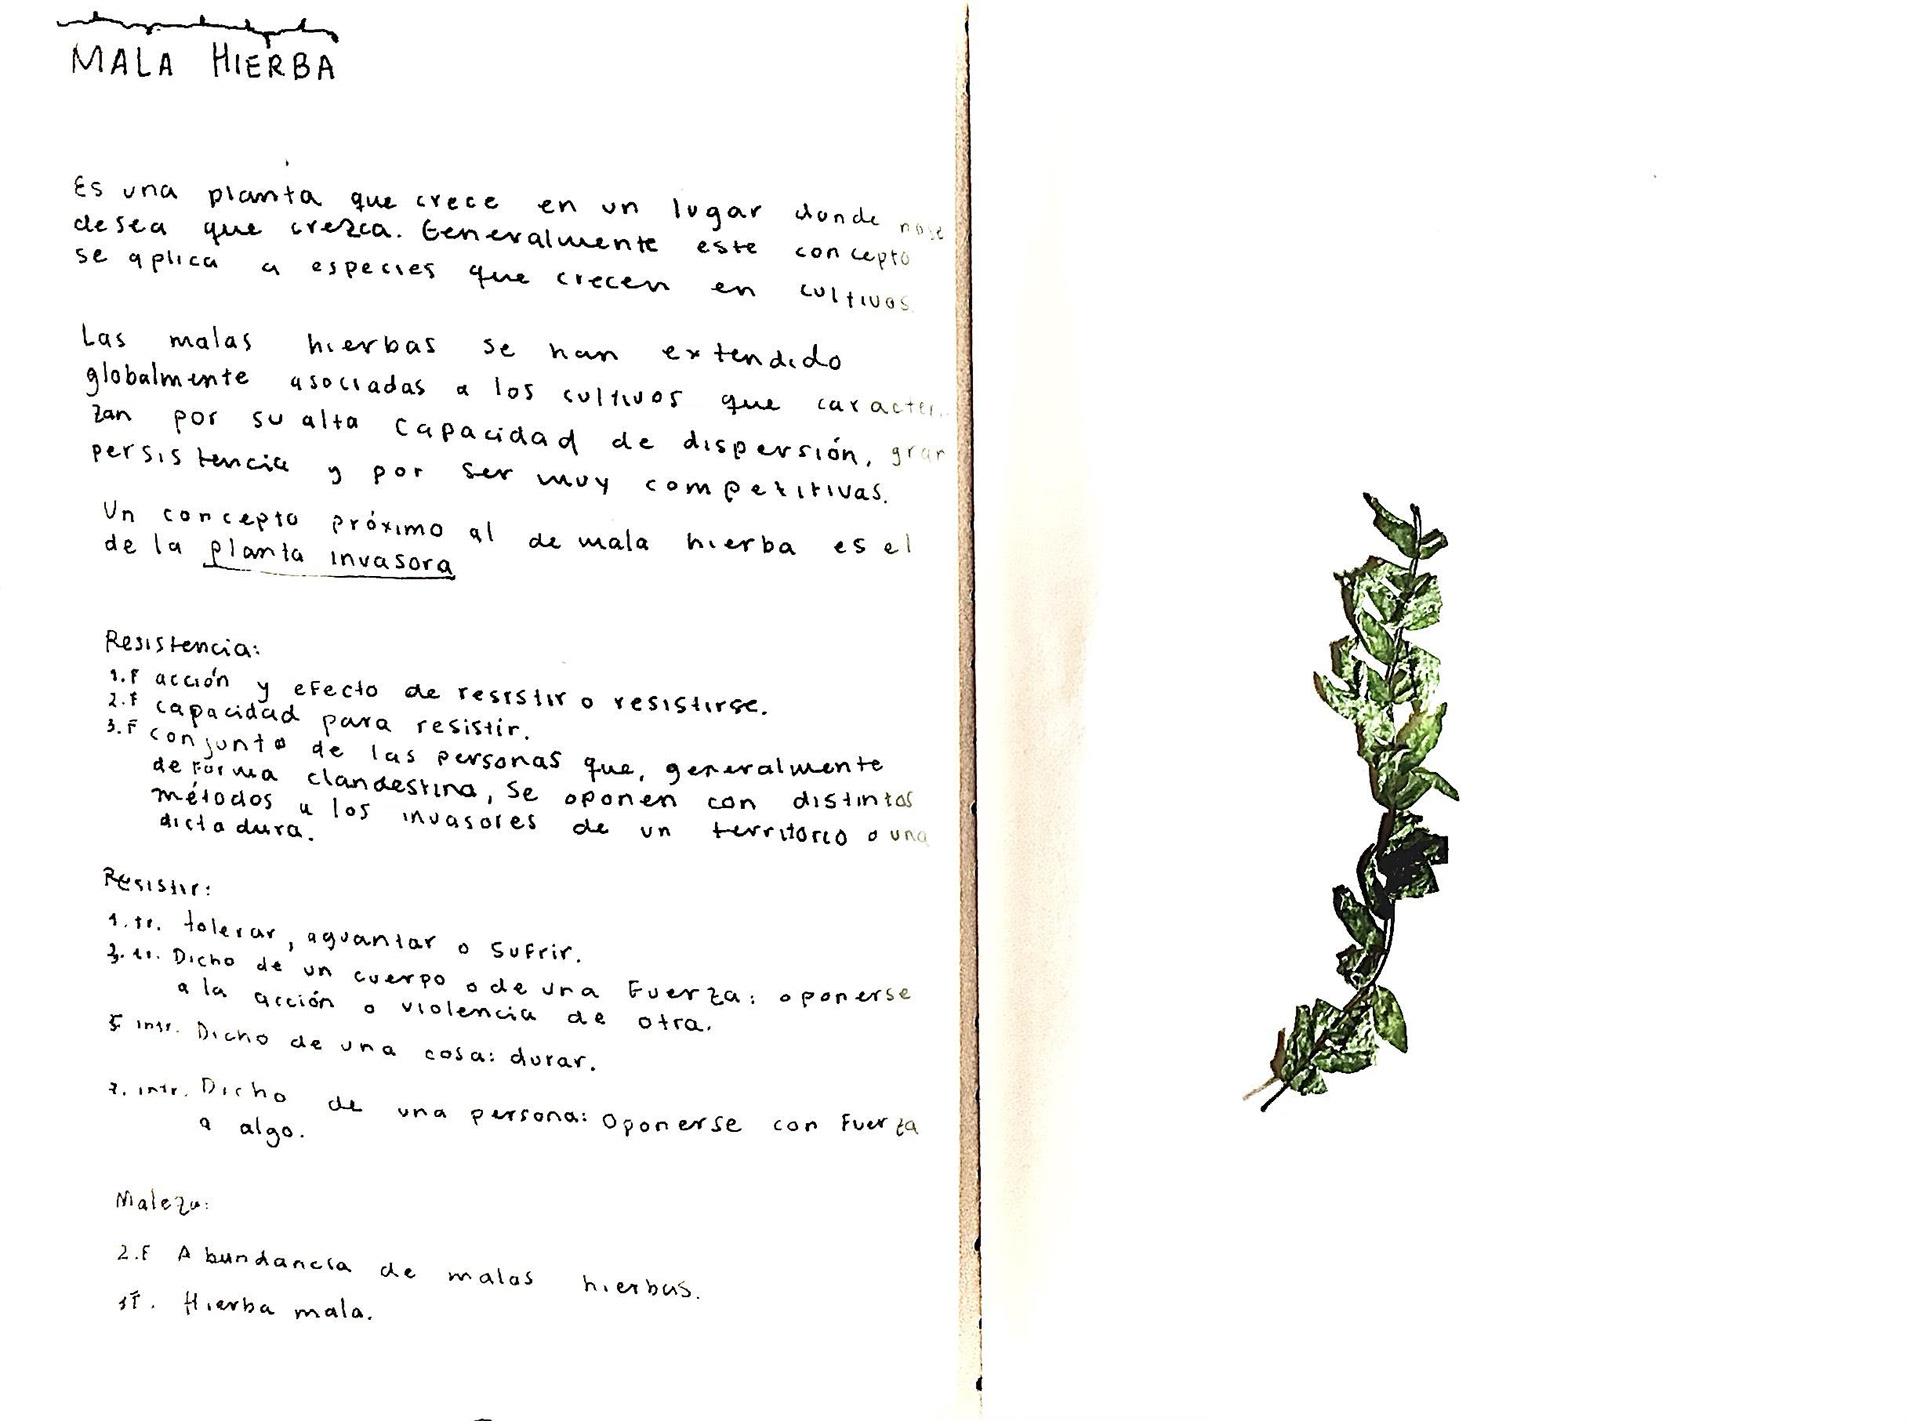 MALA HIERBA
Es una planta que crece en un lugar donde no se
desea que crezca. Generalmente este concepto
se aplica a especies que crecen en cultivos.
Las malas hierbas se han extendido
globalmente asociadas a los cultivos que caracteri
zan por su alta capacidad de dispersión, gran
persistencia y por ser muy competitivas.
Un concepto próximo al de mala hierba es el
de la planta invasora
Resistencia:
1.F acción y efecto de resistir o resistirse.
2.F capacidad para resistir.
3.F conjunto de las personas que, generalmente
de forma clandestina, se oponen con distintos
métodos a los invasores de un territorio o una
dictadura.
Resistir:
1.tr. tolerar, aguantar o sufrir.
3.tr. Dicho de un cuerpo o de una Fuerza: oponerse
a la acción o violencia de otra.
5 intr. Dicho de una cosa: durar.
7. intr. Dicho de una persona: Oponerse con Fuerza
a algo.
Maleza:
2.F Abundancia de malas hierbas.
Hierba mala.